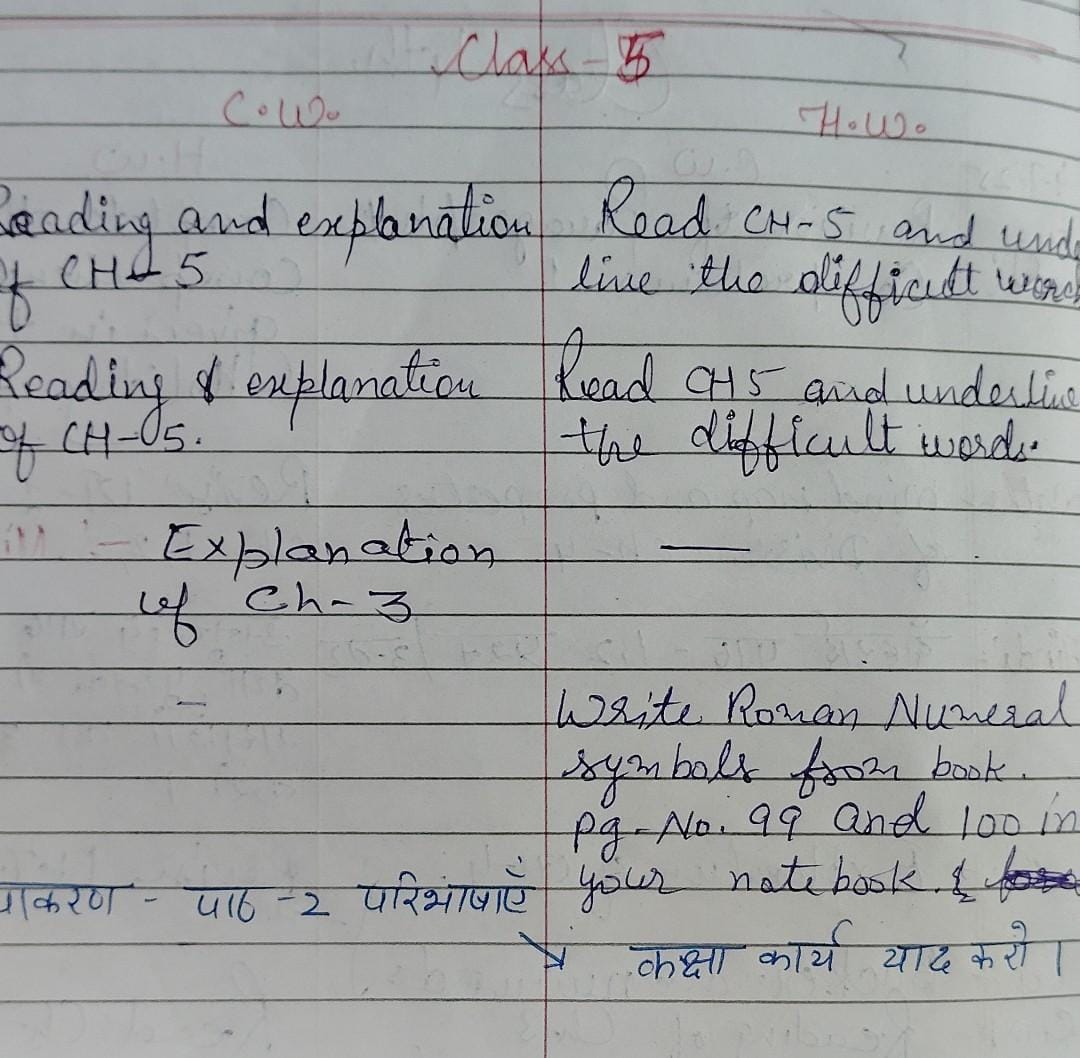 Class-5
C.W. H.W.
Reading and explanation Read CH-5 and und
of CH-5 line the difficult word
Reading & explanation Read CH5 and underline
of CH-5. the difficult words.
- Explanation —
of Ch-3
- Write Roman Numeral
symbols from book.
pg-No. 99 and 100 in
your notebook. &
याकरण - पाठ -2 परिभाषाएँ
कक्षा कार्य याद करो।